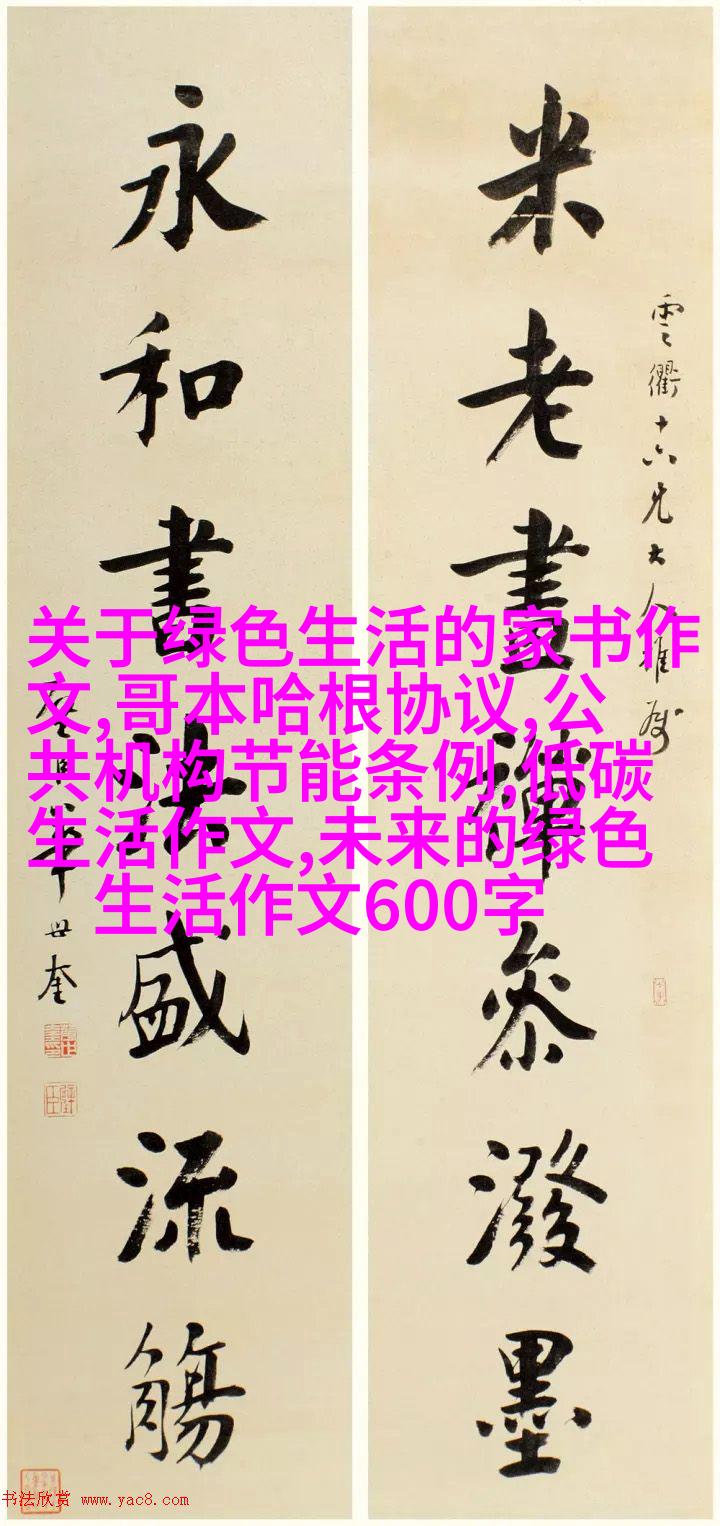 米老畫禪參潑墨
雲衢十六兄大人雅屬
永和書法盛流觴
華世奎
关于绿色生活的家书作
文,哥本哈根协议,公
共机构节能条例,低碳
生活作文,未来的绿色
生活作文600字
书法欣赏 www.yac8.com